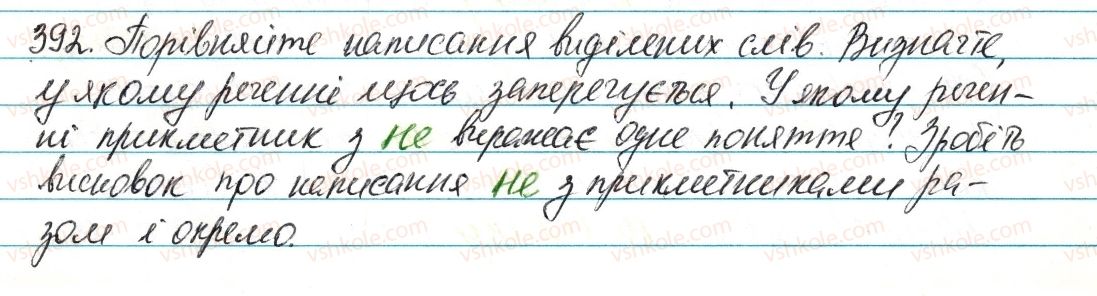 392. Порівняйте написання виділених слів. Визначте,
у якому реченні щось заперечується. У якому речен-
ні прикметник з не виражає одне поняття? Зробіть
висновок про написання не з прикметниками ра-
зом і окремо.